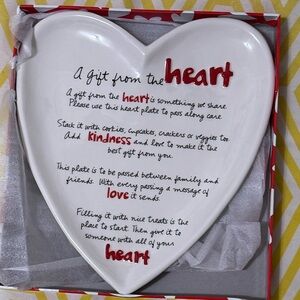 A gift from the heart
A gift from the heart is something we share.
Please use this heart plate to pass along care.
Stack it with cookies, cupcakes, crackers or veggies too.
Add kindness and love to make it the
best gift from you.
This plate is to be passed between family and
friends. With every passing a message of
love it sends.
Filling it with nice treats is the
place to start. Then give it to
someone with all of your
heart